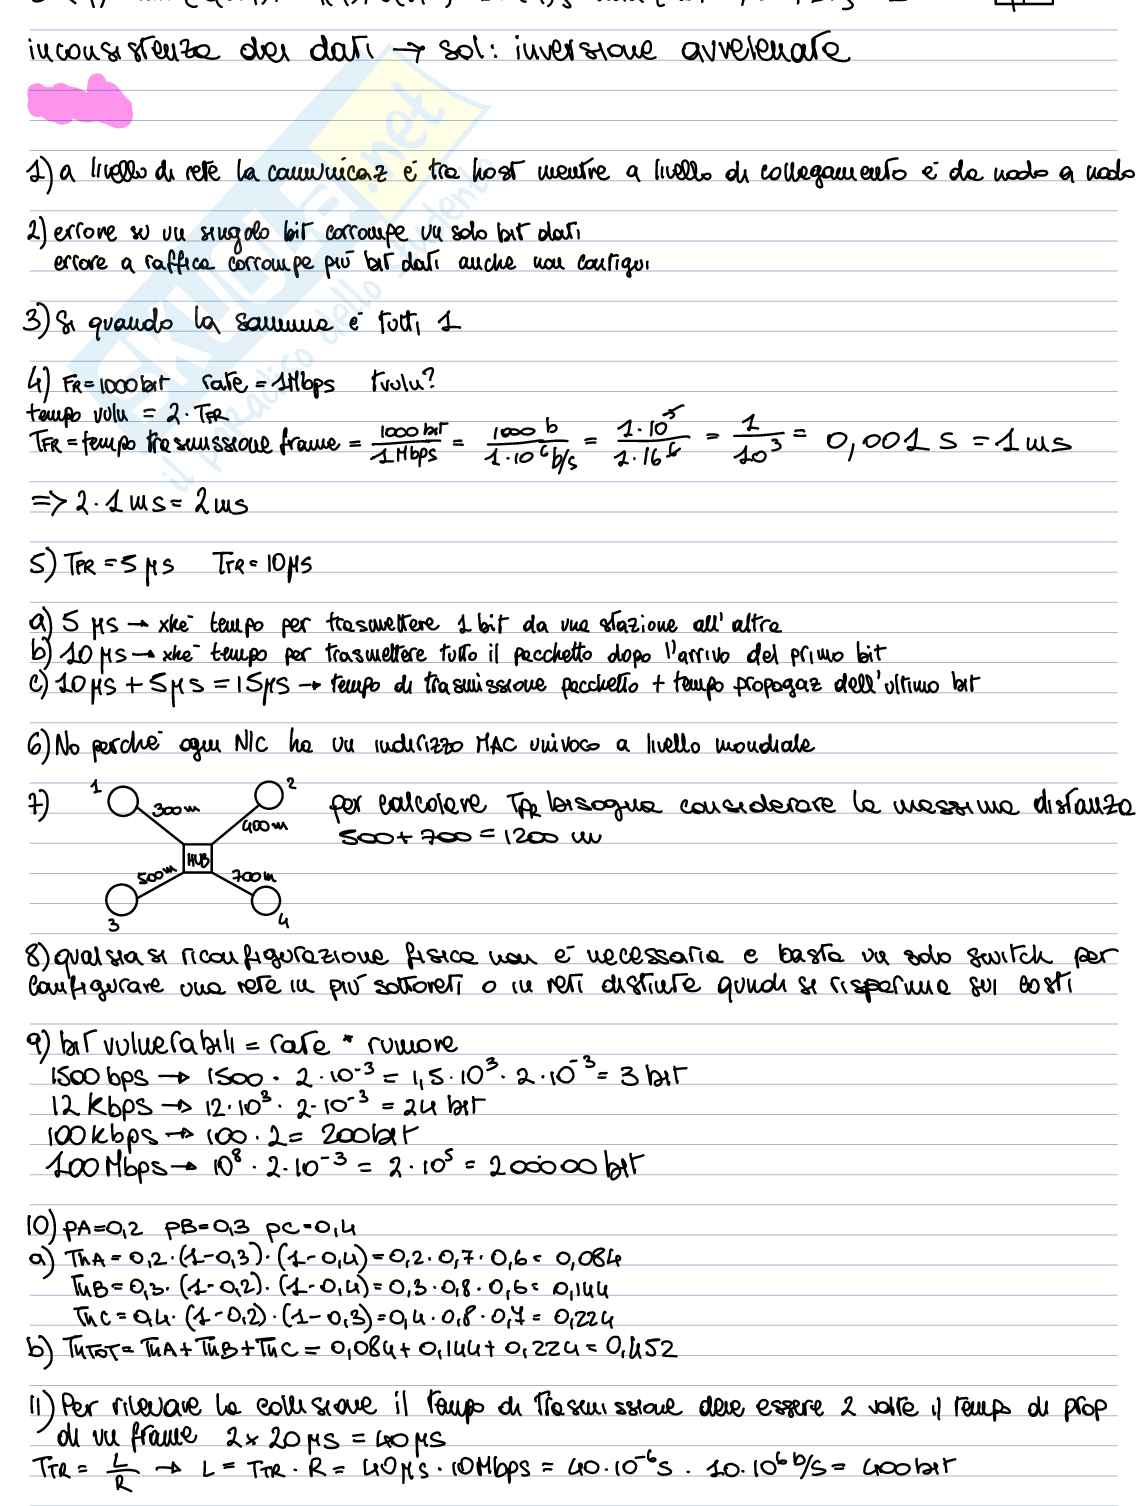 inconsistenza dei dati → sol: inversione avvelenata
1) a livello di rete la comunicaz è tra host mentre a livello di collegamento è da nodo a nodo
2) errore su un singolo bit corrompe un solo bit dati
errore a raffica corrompe più bit dati anche non contigui
3) Sì quando la somma è tutti 1
4) FR=1000bit rate=1Mbps tvuln?
tempo vuln = 2·TFR
TFR=tempo trasmissione frame = 1000 bit / 1 Mbps = 1000 b / 1·10^6 b/s = 1·10^3 / 1·10^6 = 1 / 10^3 = 0,001 s = 1 ms
=> 2·1ms = 2ms
5) TPR = 5 μs TTR = 10μs
a) 5 μs → xké tempo per trasmettere 1 bit da una stazione all'altra
b) 10 μs → xké tempo per trasmettere tutto il pacchetto dopo l'arrivo del primo bit
c) 10μs + 5μs = 15μs → tempo di trasmissione pacchetto + tempo propagaz dell'ultimo bit
6) No perché ogni NIC ha un indirizzo MAC univoco a livello mondiale
7) per calcolare TPR bisogna considerare la massima distanza
500+700 = 1200 m
1 2
300m 400m
HUB
500m 700m
3 4
8) qualsiasi riconfigurazione fisica non è necessaria e basta un solo switch per
configurare una rete in più sottoreti o in reti distinte quindi si risparmia sui costi
9) bit vulnerabili = rate * rumore
1500 bps → 1500 · 2·10^-3 = 1,5·10^3 · 2·10^-3 = 3 bit
12 Kbps → 12·10^3 · 2·10^-3 = 24 bit
100 kbps → 100·2 = 200bit
100 Mbps → 10^8 · 2·10^-3 = 2·10^5 = 200000 bit
10) pA=0,2 pB=0,3 pC=0,4
a) ThA = 0,2·(1-0,3)·(1-0,4) = 0,2·0,7·0,6 = 0,084
ThB = 0,3·(1-0,2)·(1-0,4) = 0,3·0,8·0,6 = 0,144
ThC = 0,4·(1-0,2)·(1-0,3) = 0,4·0,8·0,7 = 0,224
b) ThTOT = ThA+ThB+ThC = 0,084+0,144+0,224 = 0,452
11) Per rilevare la collisione il tempo di trasmissione deve essere 2 volte il tempo di prop
di un frame 2x20μs = 40μs
TTR = L / R → L = TTR·R = 40μs·10Mbps = 40·10^-6 s · 10·10^6 b/s = 400bit
SKUOLA.net
il paradiso dello studente